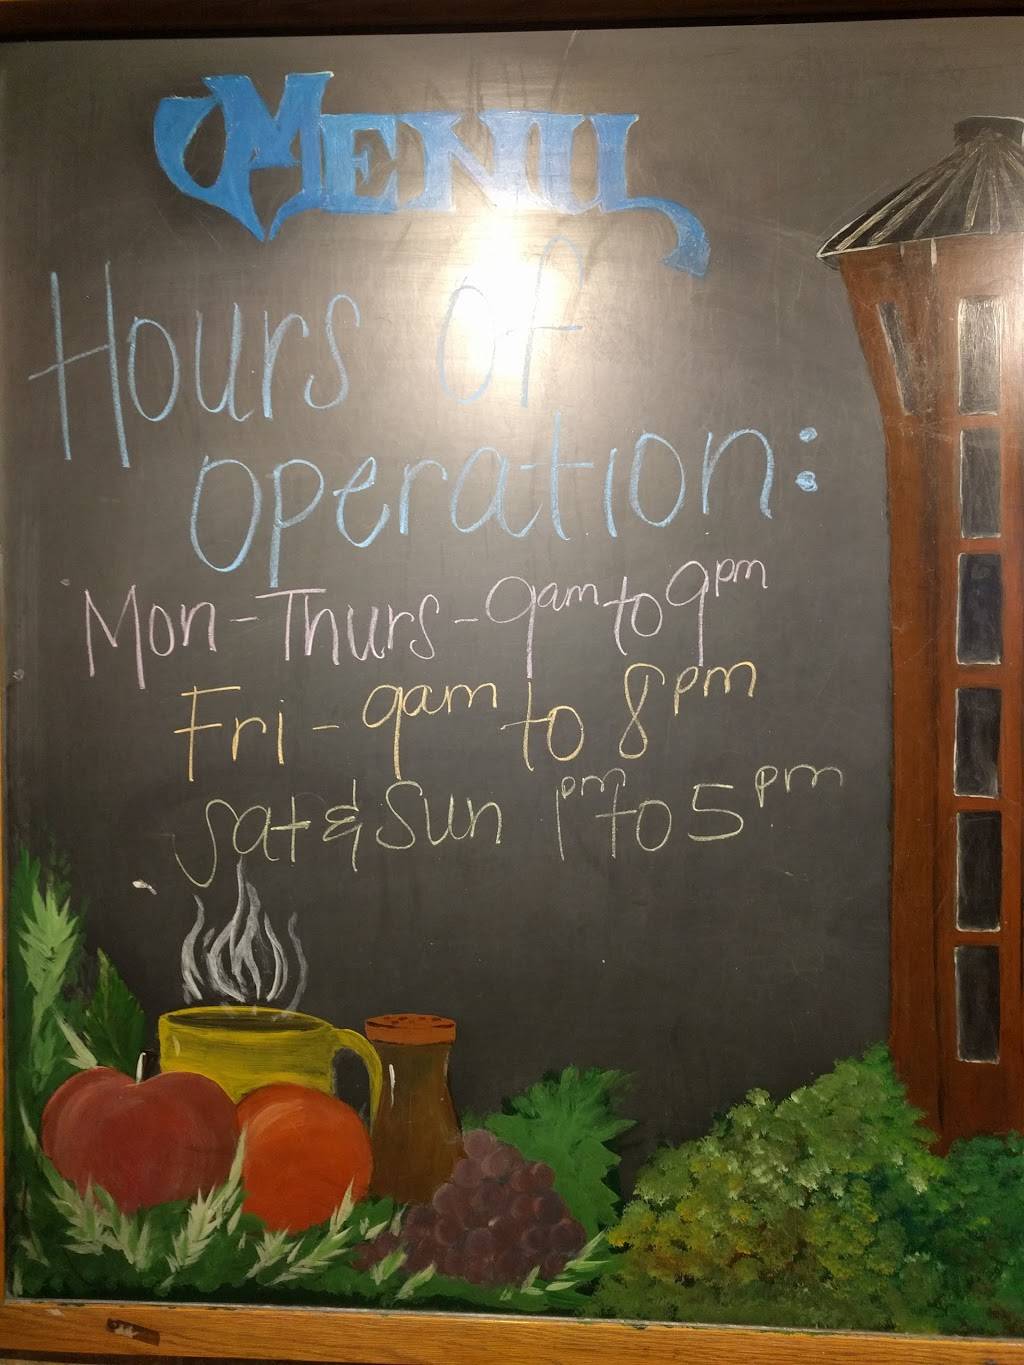 MENU
Hours of
operation:
Mon-Thurs-9am to 9pm
Fri-9am to 8pm
Sat & Sun 1pm to 5pm